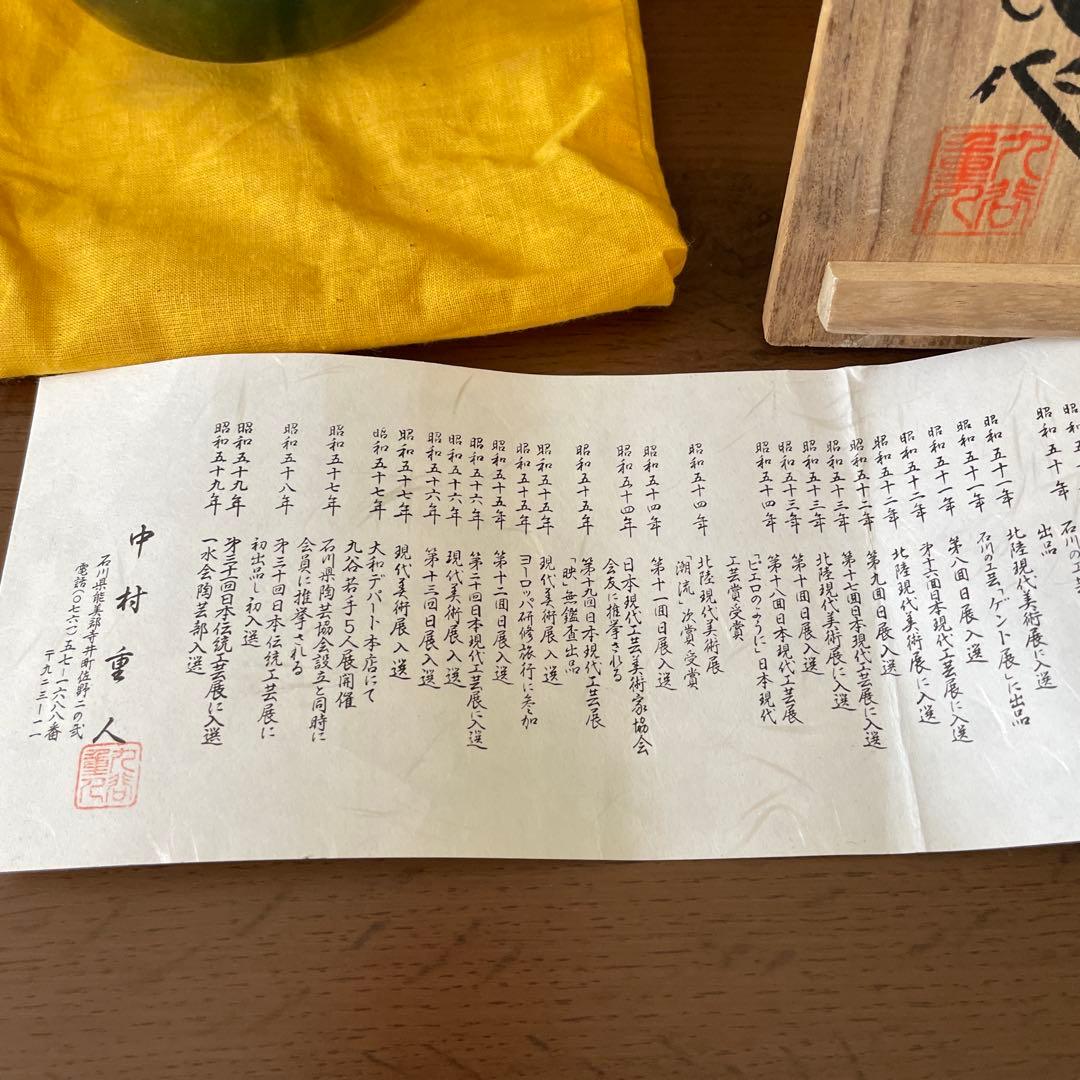 昭和五十年
出品
石川の工芸「ゲント展」に出品
昭和五十一年
北陸現代美術展に入選
昭和五十一年
第八回日展入選
昭和五十一年
第十六回日本現代工芸展に入選
昭和五十二年
北陸現代美術展に入選
昭和五十二年
第九回日展入選
昭和五十二年
第十七回日本現代工芸展に入選
昭和五十三年
北陸現代美術展に入選
昭和五十三年
第十回日展入選
昭和五十四年
第十八回日本現代工芸展
「ピエロのように」日本現代
工芸賞受賞
昭和五十四年
北陸現代美術展
「潮流」次賞受賞
昭和五十四年
第十一回日展入選
昭和五十四年
日本現代工芸美術家協会
会友に推挙される
昭和五十五年
第十九回日本現代工芸展
「映」無鑑査出品
昭和五十五年
現代美術展入選
昭和五十五年
ヨーロッパ研修旅行に参加
昭和五十五年
第十二回日展入選
昭和五十六年
第二十回日本現代工芸展に入選
昭和五十六年
現代美術展入選
昭和五十六年
第十三回日展入選
昭和五十七年
現代美術展入選
昭和五十七年
大和デパート本店にて
九谷若手5人展開催
昭和五十七年
石川県陶芸協会設立と同時に
会員に推挙される
昭和五十八年
第三十回日本伝統工芸展に
初出品し初入選
昭和五十九年
第三十一回日本伝統工芸展に入選
昭和五十九年
一水会陶芸部入選
中村重人
石川県能美郡寺井町佐野二の弐
電話(〇七六一)五七-一六八八番
〒九二三-一一
九谷
重人
九谷
重人